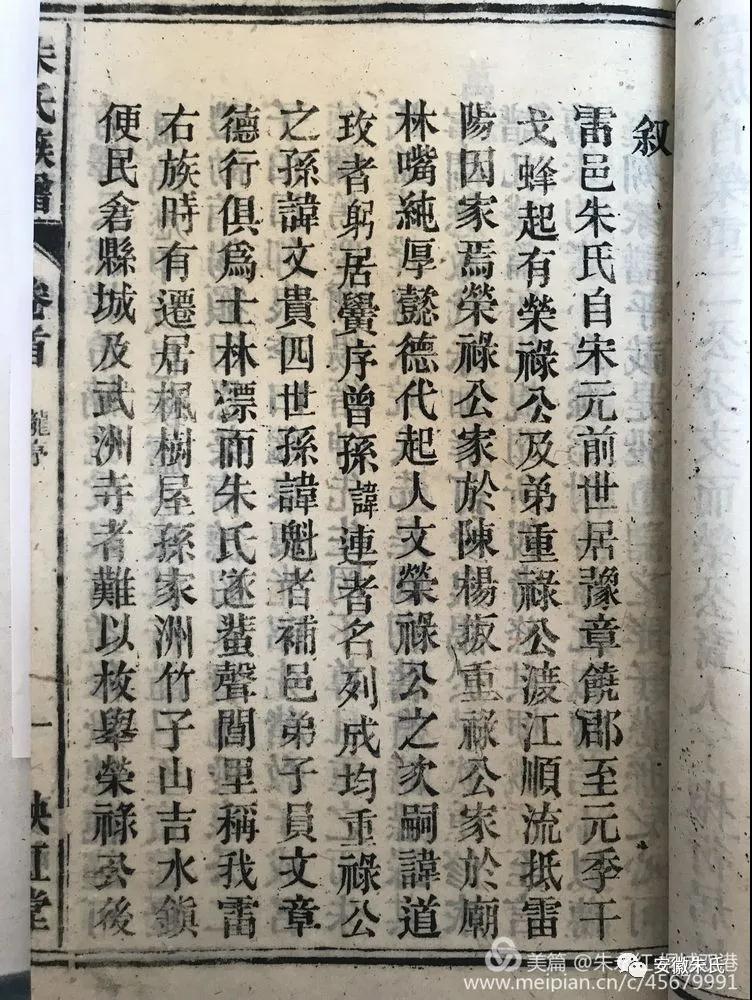 叙
雷邑朱氏自宋元前世居豫章饒郡至元季干
戈蜂起有榮祿公及弟重祿公渡江順流抵雷
陽因家焉榮祿公家於陳楊坂重祿公家於廟
林嘴純厚懿德代起人文榮祿公之次嗣諱道
玫者躬居黌序曾孫諱連者名列成均重祿公
之孫諱文貴四世孫諱魁者補邑弟子員文章
德行俱爲士林漂而朱氏遂蜚聲閭里稱我雷
右族時有遷居楓樹屋孫家洲竹子山吉水鎮
便民倉縣城及武洲寺者難以枚舉榮祿公後
朱氏族譜
卷首
一
映紅堂
美篇
安徽朱氏
www.meipian.cn/c/45679991